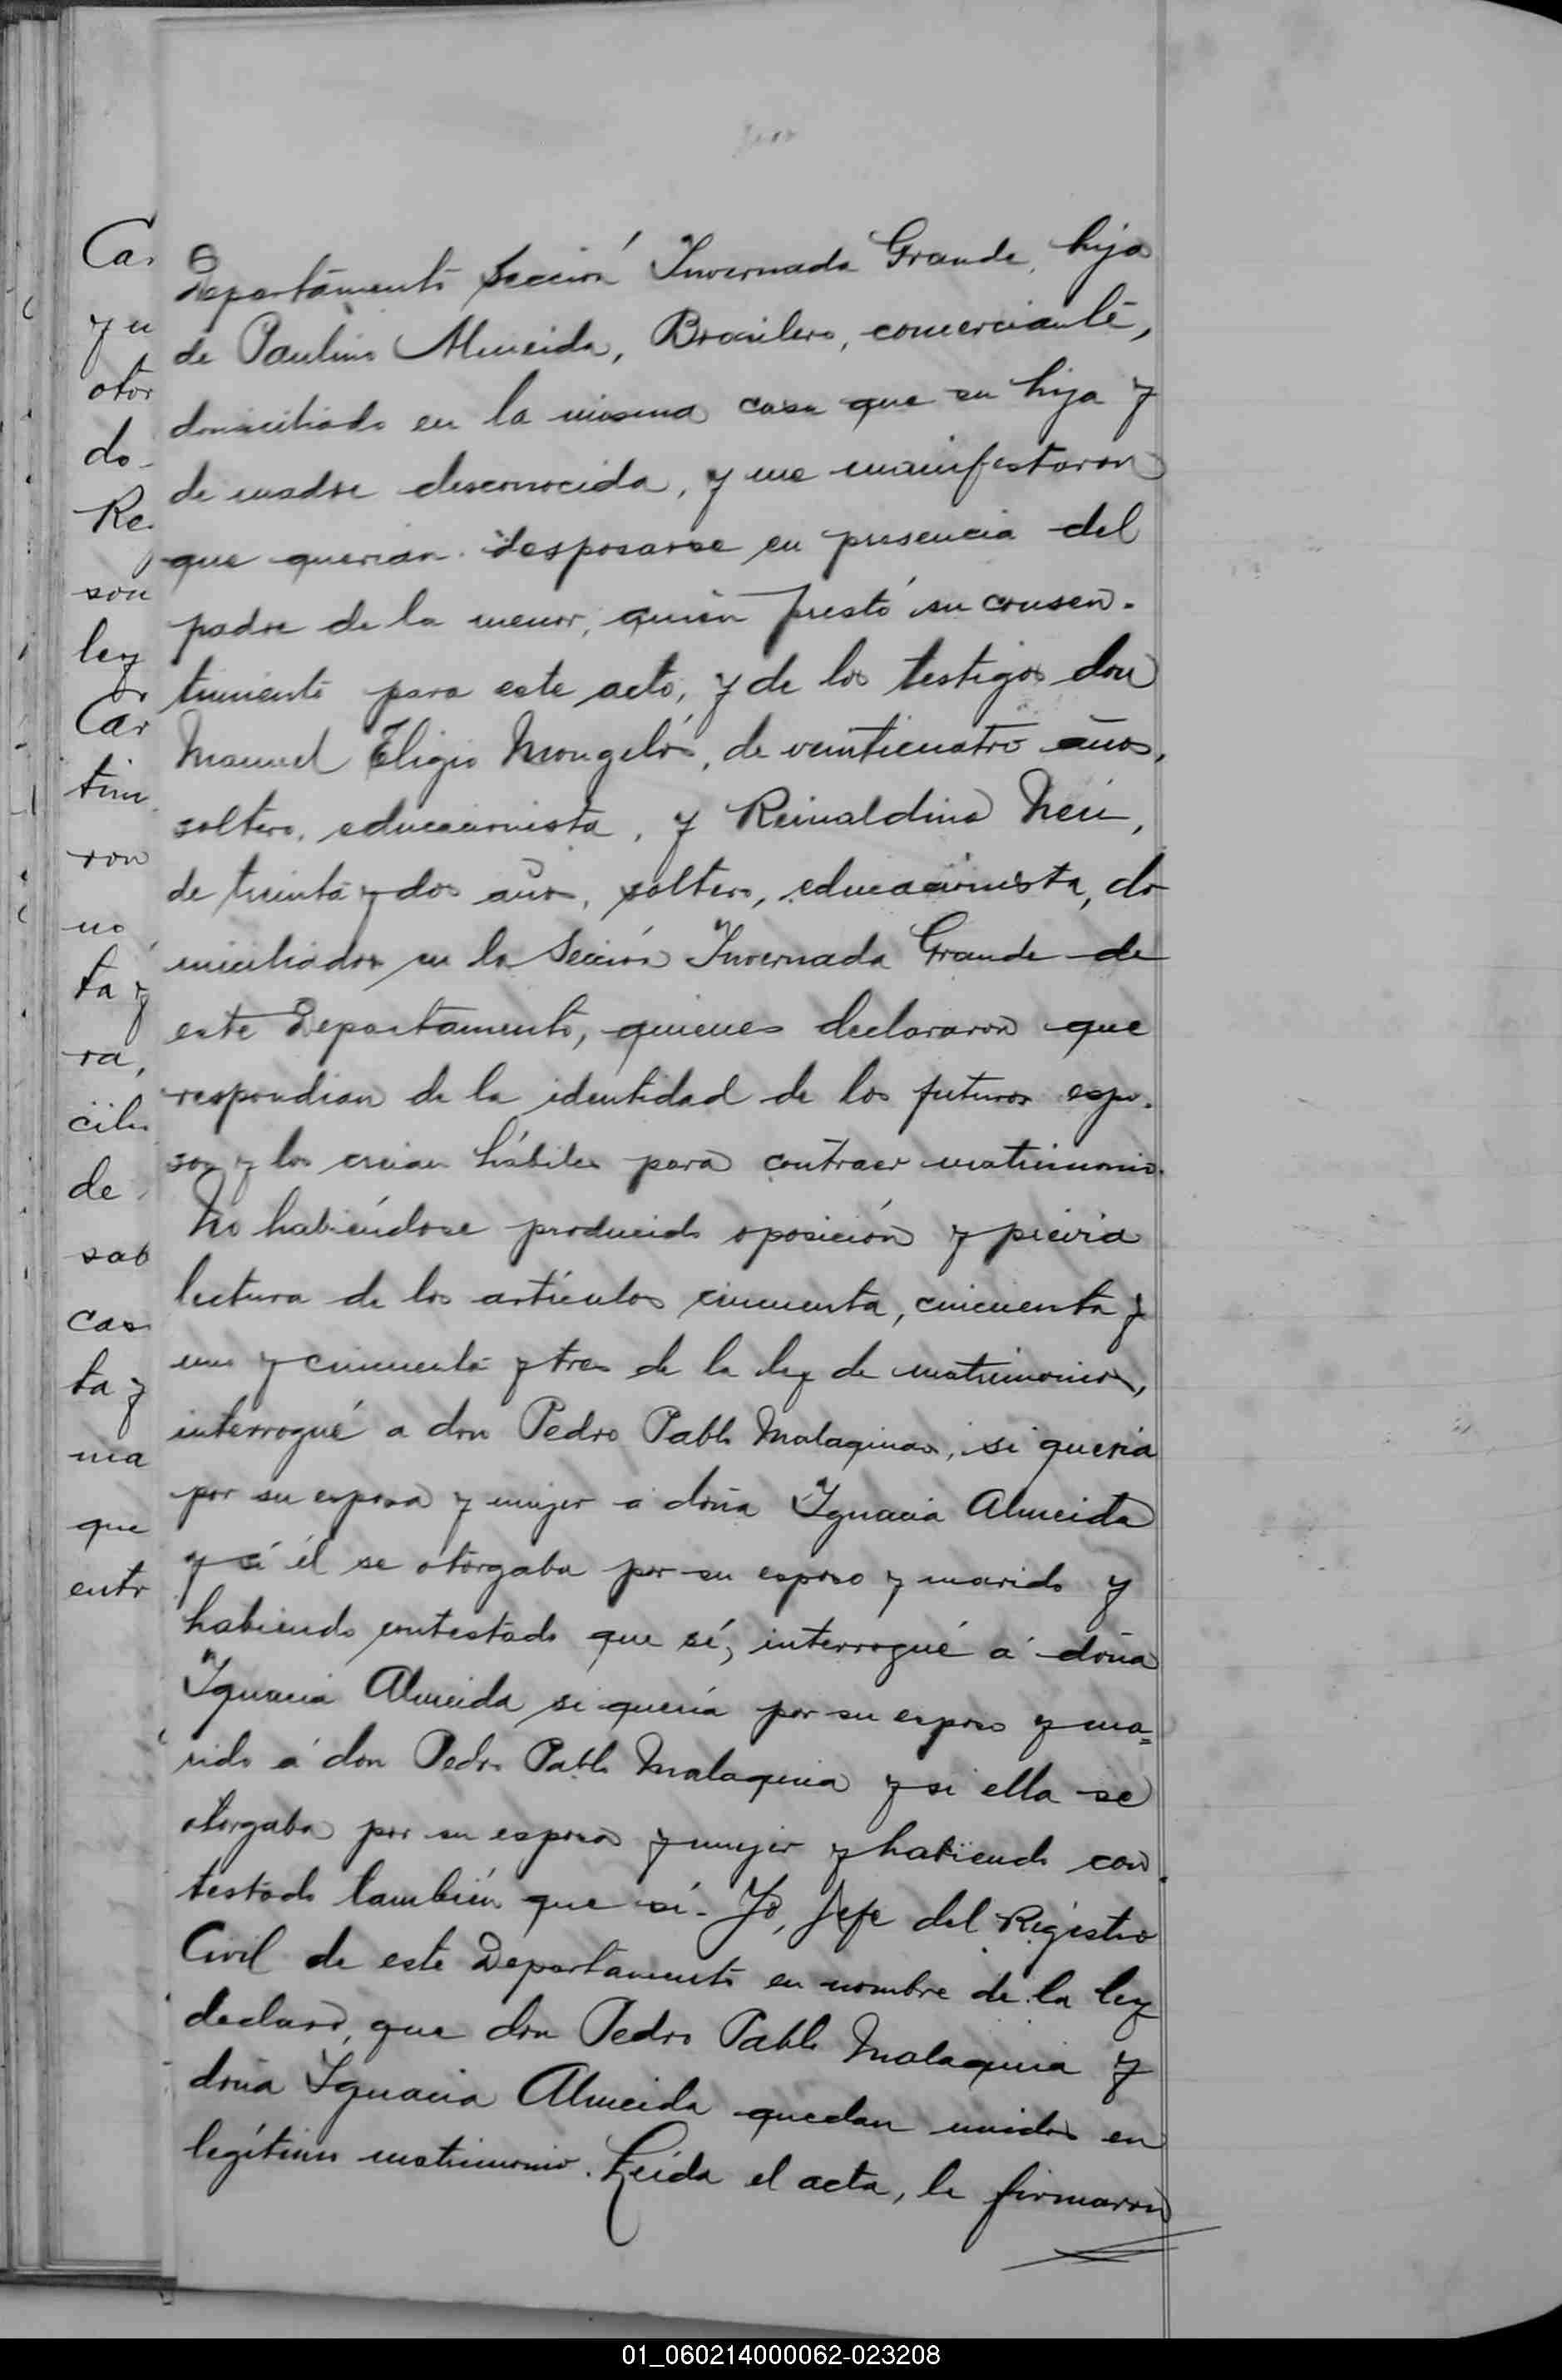 Departamento Sección Invernada Grande, hija
de Paulino Almeida, Brasilero, comerciante,
domiciliado en la misma casa que su hija y
de madre desconocida, y me manifestaron
que querian desposarse en presencia del
padre de la menor, quien prestó su consen-
timiento para este acto, y de los testigos don
Manuel Eligio Mongelós, de veinticuatro años,
soltero, educacionista, y Reinaldino
de treinta y dos años, soltero, educacionista, do
miciliados en la Sección Invernada Grande de
este Departamento, quienes declararon que
respondian de la identidad de los futuros espo-
sos y los creian hábiles para contraer matrimonio.
No habiéndose producido oposición y previa
lectura de los artículos cincuenta, cincuenta y
uno y cincuenta y tres de la ley de matrimonios,
interrogué a don Pedro Pablo Malaquias, si queria
por su esposa y mujer a doña Ignacia Almeida
y si él se otorgaba por su esposo y marido y
habiendo contestado que sí, interrogué á doña
Ignacia Almeida si quería por su esposo y ma=
rido á don Pedro Pablo Malaquia y si ella se
otorgaba por su esposa y mujer y habiendo con
testado también que sí- Yo, Jefe del Registro
Civil de este Departamento en nombre de la ley
declaro, que don Pedro Pablo Malaquia y
doña Ignacia Almeida quedan unidos en
legítimo matrimonio. Leída el acta, la firmaron
Ca.
y u
otor
do
Re.
son
ley
Car
tim
ron
no
ta y
ra,
cili
de
sab
cas
ta y
ma
que
entr
01_060214000062-023208